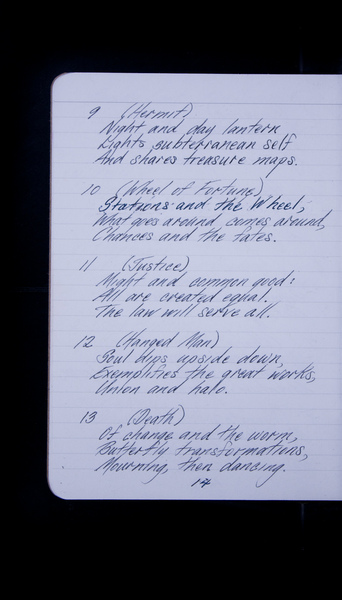 9 (Hermit)
Night and day lantern
Lights subterranean self
And shares treasure maps.
10 (Wheel of Fortune)
Stations and the Wheel,
What goes around comes around,
Chances and the fates.
11 (Justice)
Might and common good:
All are created equal.
The law will serve all.
12 (Hanged Man)
Soul dips upside down,
Exemplifies the great works,
Union and halo.
13 (Death)
Of change and the worm,
Butterfly transformations,
Mourning, then dancing.
14